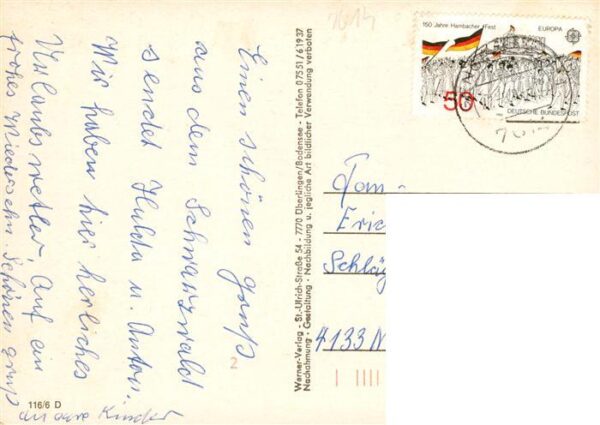 Einen schönen Gruß
aus dem Schwarzwald
sendet Hulda u. Anton.
Wir haben hier herliches
Urlaubswetter. Auf ein
frohes Wiedersehn. Schönen gruß
an eure Kinder
116/6 D
2
Werner-Verlag - St.-Ulrich-Straße 54 - 7770 Überlingen/Bodensee - Telefon 07551/61937
Nachahmung - Gestaltung - Nachbildung u. jegliche Art bildlicher Verwendung verboten
7614
150 Jahre Hambacher Fest
EUROPA
50
DEUTSCHE BUNDESPOST
Fam.
Eric
Schläg
4133 N